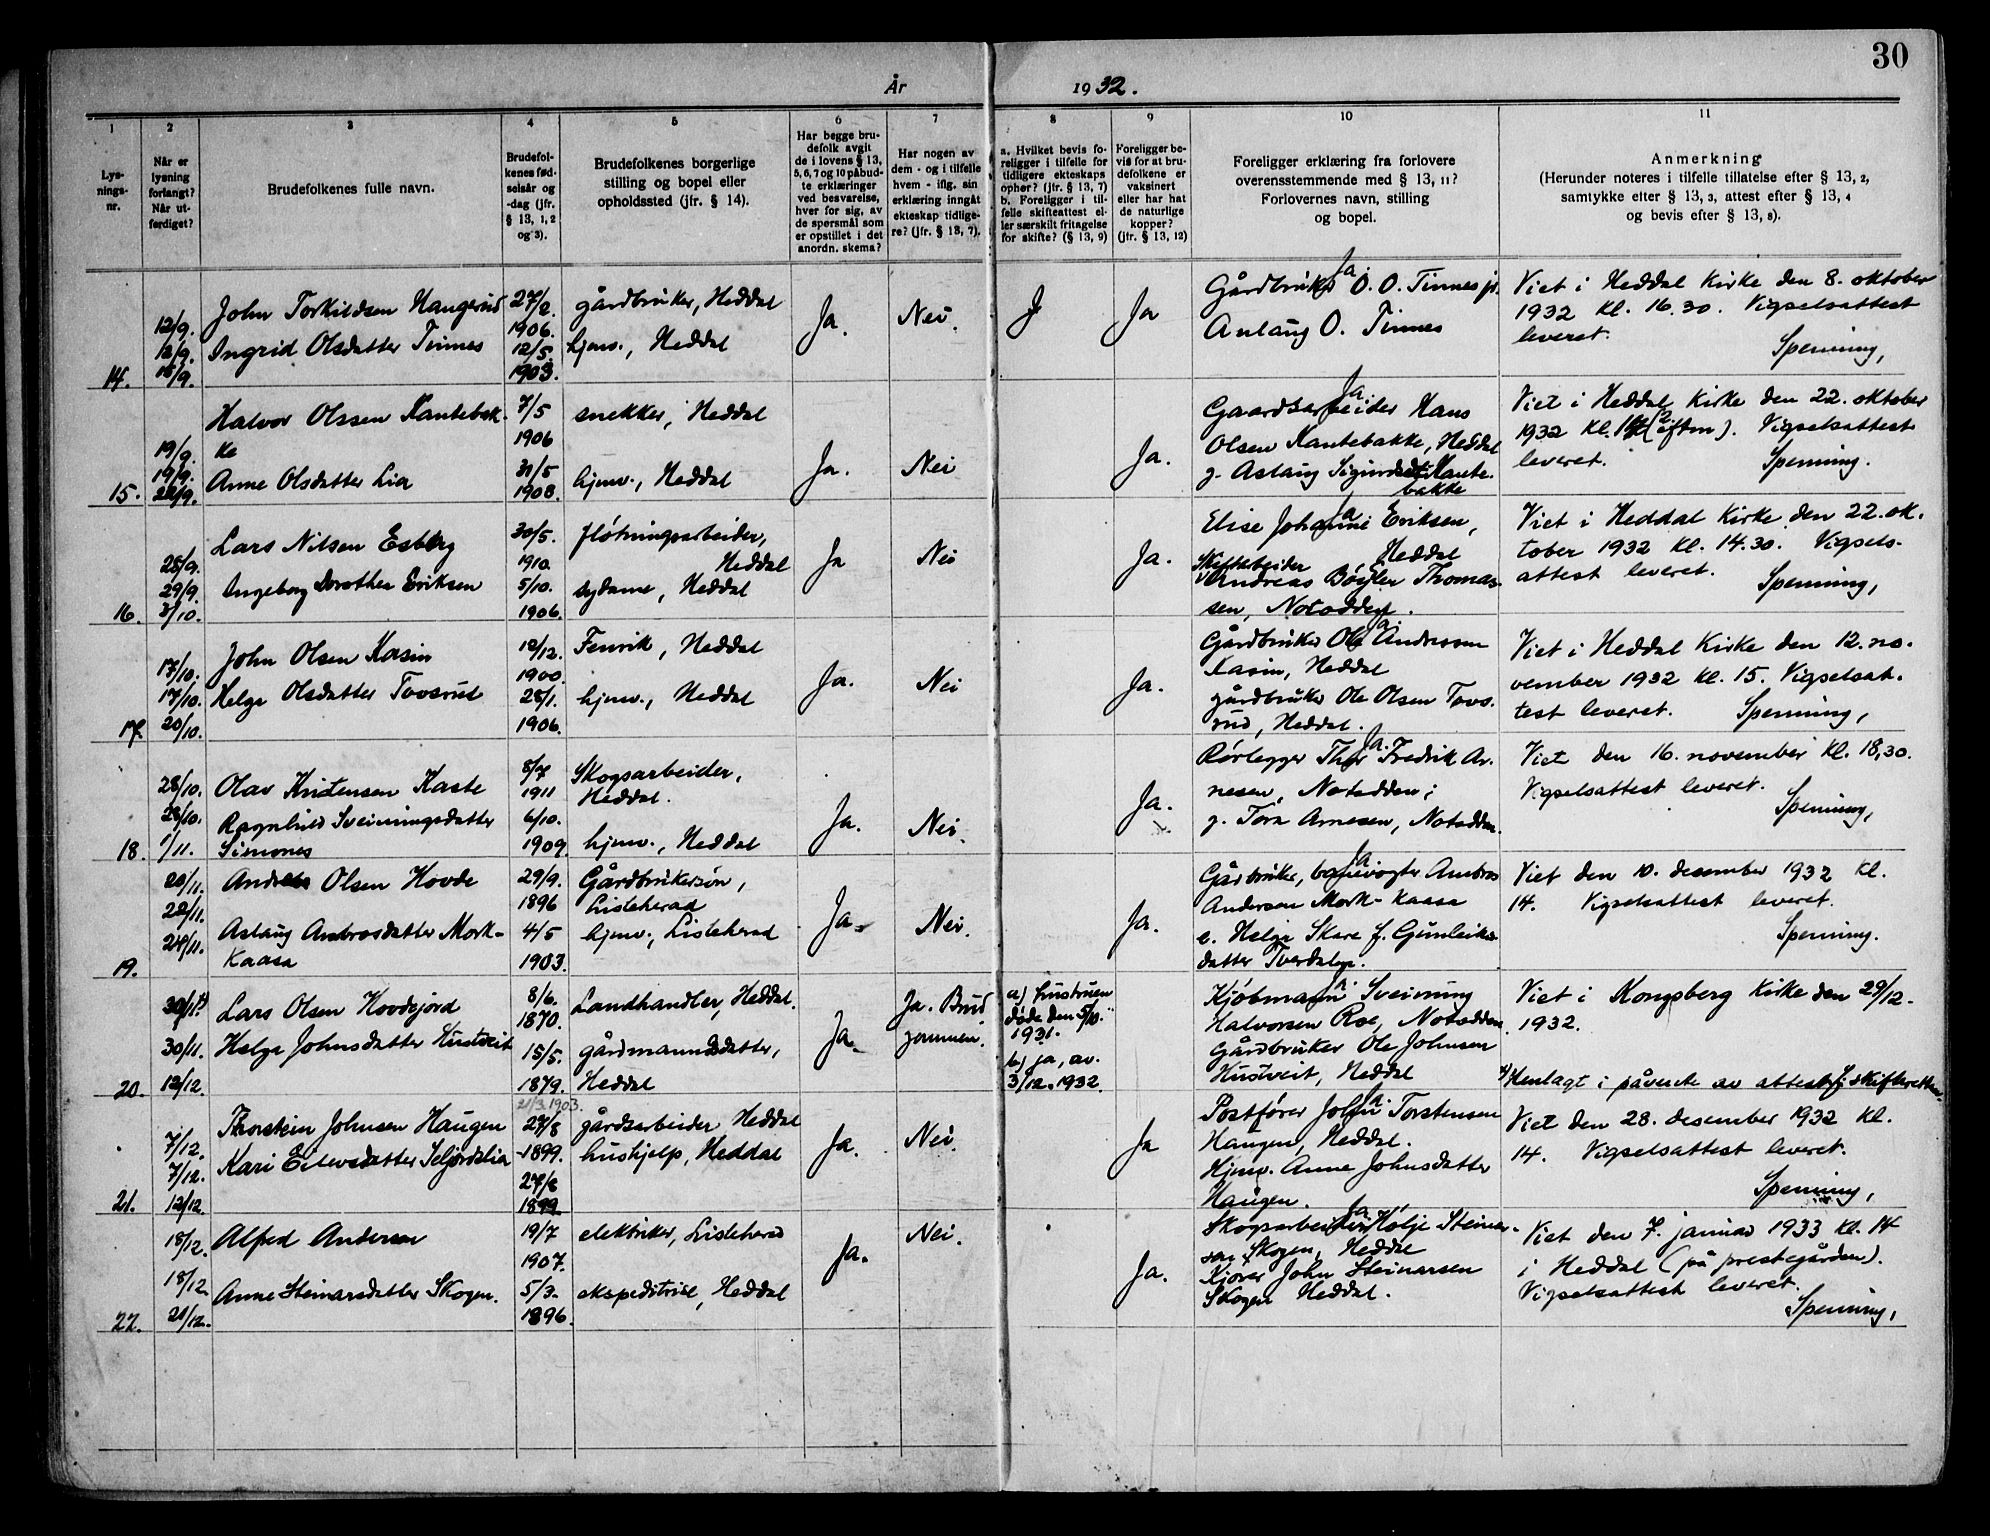 30
År 1932.
1 2 3 4 5 6 7 8 9 10 11
Lys-
nings-
nr.
Når er
lysning
forlangt?
Når ut-
ferdiget?
Brudefolkenes fulle navn.
Brudefol-
kenes fød-
selsår og
-dag (jfr.
§ 13, 1, 2
og 3).
Brudefolkenes borgerlige
stilling og bopel eller
opholdssted (jfr. § 14).
Har begge bru-
defolk avgit
de i lovens § 13,
5, 6, 7 og 10 påbud-
te erklæringer
ved besvarelse,
hver for sig, av
de spørsmål som
er opstillet i det
anordn. skema?
Har nogen av
dem - og i tilfelle
hvem - iflg. sin
erklæring inngåt
ekteskap tidlige-
re? (jfr. § 13, 7).
a. Hvilket bevis fo-
religger i tilfelle for
tidligere ekteskaps
ophør? (jfr. § 13, 7)
b. Foreligger i til-
felle skifteattest el-
ler særskilt fritagelse
for skifte? (§ 13, 9)
Foreligger be-
vis for at bru-
defolkene er
vaksinert
eller har hat
de naturlige
kopper?
(jfr. § 13, 12)
Foreligger erklæring fra forlovere
overensstemmende med § 13, 11?
Forlovernes navn, stilling
og bopel.
Anmerkning
(Herunder noteres i tilfelle tillatelse efter § 13, 2,
samtykke efter § 13, 3, attest efter § 13, 4
og bevis efter § 13, 8).
14.
12/9.
12/9.
15/9.
John Torkildsen Haugerud
Ingrid Olsdatter Tinnes
27/2.
1906.
12/5.
1903.
gårdbruker, Heddal
hjemv., Heddal
Ja.
Nei.
Ja
Ja.
Gårdbruker O. O. Tinnes jr.
Aslaug O. Tinnes
Viet i Heddal kirke den 8. oktober
1932 kl. 16.30. Vigselsattest
leveret.
Spenning,
15.
19/9.
19/9.
22/9.
Halvor Olssen Kantebak-
ke
Anne Olsdatter Lia
7/5
1906
31/5
1908.
snekker, Heddal
hjemv., Heddal
Ja.
Nei
Ja.
Ja.
Gaardsarbeider Hans
Olsen Kantebakke, Heddal
g. Aslaug Sigurdsdt. Kante-
bakke
Viet i Heddal kirke den 22. oktober
1932 kl. (eftm). Vigselsattest
leveret.
Spenning.
16.
28/9.
29/9.
3/10.
Lars Nilsen Esberg
Ingeborg Dorothea Eriksen
30/5.
1910.
5/10.
1906.
fløtningsarbeider,
Heddal
sydame, Heddal
Ja
Nei
Ja.
Ja
Elise Johanne Eriksen,
Heddal
Skiftarbeider
Andreas Bøgler Thomas-
sen, Notodden.
Viet i Heddal kirke den 22. ok-
tober 1932 kl. 14.30. Vigsels-
attest leveret.
Spenning,
17.
17/10.
17/10.
20/10.
John Olsen Kasin
Helge Olsdatter Tovsrud
12/12.
1900.
28/1.
1906.
Fenrik, Heddal
hjemv., Heddal
Ja.
Nei
Ja.
Ja.
Gårdbruker Ole Andressen
Kasin, Heddal
gårdbruker Ole Olsen Tovs-
rud, Heddal.
Viet i Heddal kirke den 12. no-
vember 1932 kl. 15. Vigselsat-
test leveret.
Spenning,
18.
28/10.
28/10.
1/11.
Olav Kristensen Kaste
Ragnhild Sveinungsdatter
Simones
8/7
1911
6/10.
1909.
Skogsarbeider,
Heddal.
hjemv., Heddal
Ja.
Nei.
Ja.
Ja.
Rørlegger Thor Fredrik Ar-
nesen, Notodden;
g. Tora Arnesen, Notodden.
Viet den 16. november kl. 18,30.
Vigselsattest leveret.
Spenning,
19.
20/11.
22/11.
24/11.
Andreas Olsen Hovde
Aslaug Ambrosdatter Mork-
Kaasa
29/9.
1896
4/5
1903.
Gårdbrukersøn,
Lisleherad
hjemv., Lisleherad
Ja.
Nei.
Ja.
Ja
Gårdbruker, banevogter Ambros
Andersen Mork-Kaasa
e. Helga Skare f. Gunleiks-
datter Tverdalen.
Viet den 10. desember 1932 kl.
14. Vigselsattest leveret.
Spenning.
20.
30/11 x)
30/11.
12/12.
Lars Olsen Hovdejord
Helge Johnsdatter Hustveit
8/6.
1870.
15/5.
1879.
Landhandler, Heddal.
gårdmannsdatter,
Heddal
Ja.
Ja. Brud
gommen.
a) hustruen
døde den 5/10.
1931.
b) ja, av.
3/12.1932.
Kjøbmann Sveinung
Halvorsen Roe, Notodden.
Gårdbruker Ole Johnsen
Hustveit, Heddal
Viet i Kongsberg kirke den 29/12-
1932.
x) Henlagt i påvente av attest fr. skifteretten
21.
7/12.
7/12.
12/12.
Thorstein Johnsen Haugen
Kari Eilevsdatter Seljordslia
21/3.1903.
27/8
1899.
27/8
1899
gårdsarbeider Heddal
hushjelp, Heddal
Ja.
Nei.
Ja
Ja.
Postfører John Torstensen
Haugen, Heddal.
Hjemv. Anne Johnsdatter
Haugen.
Viet den 28. desember 1932 kl.
14. Vigselsattest leveret.
Spenning,
22.
18/12.
18/12.
21/12.
Alfred Andersen
Anne Steinarsdatter Skogen.
19/7
1907.
5/3.
1896.
elektriker, Lisleherad
ekspeditrise, Heddal
Ja.
Nei.
Ja.
Ja
Skogsarbeider Hølje Steinar-
sen Skogen, Heddal
Kjører John Steinarsen
Skogen Heddal.
Viet den 7. januar 1933 kl. 14
i Heddal (på prestegården).
Vigselsattest leveret.
Spenning,